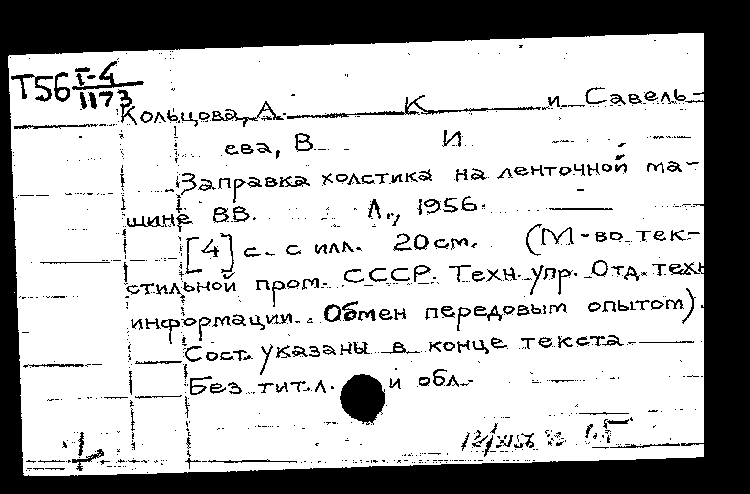 Т56 I-4
1173
Кольцова, А. К и Савель-
ева, В И
Заправка холстика на ленточной ма-
шине ВВ. Л., 1956.
[4] с. с илл. 20 см. (М-во тек-
стильной пром. СССР. Техн. упр. Отд. техн
информации. Обмен передовым опытом).
Сост. указаны в конце текста
Без тит. л. и обл.